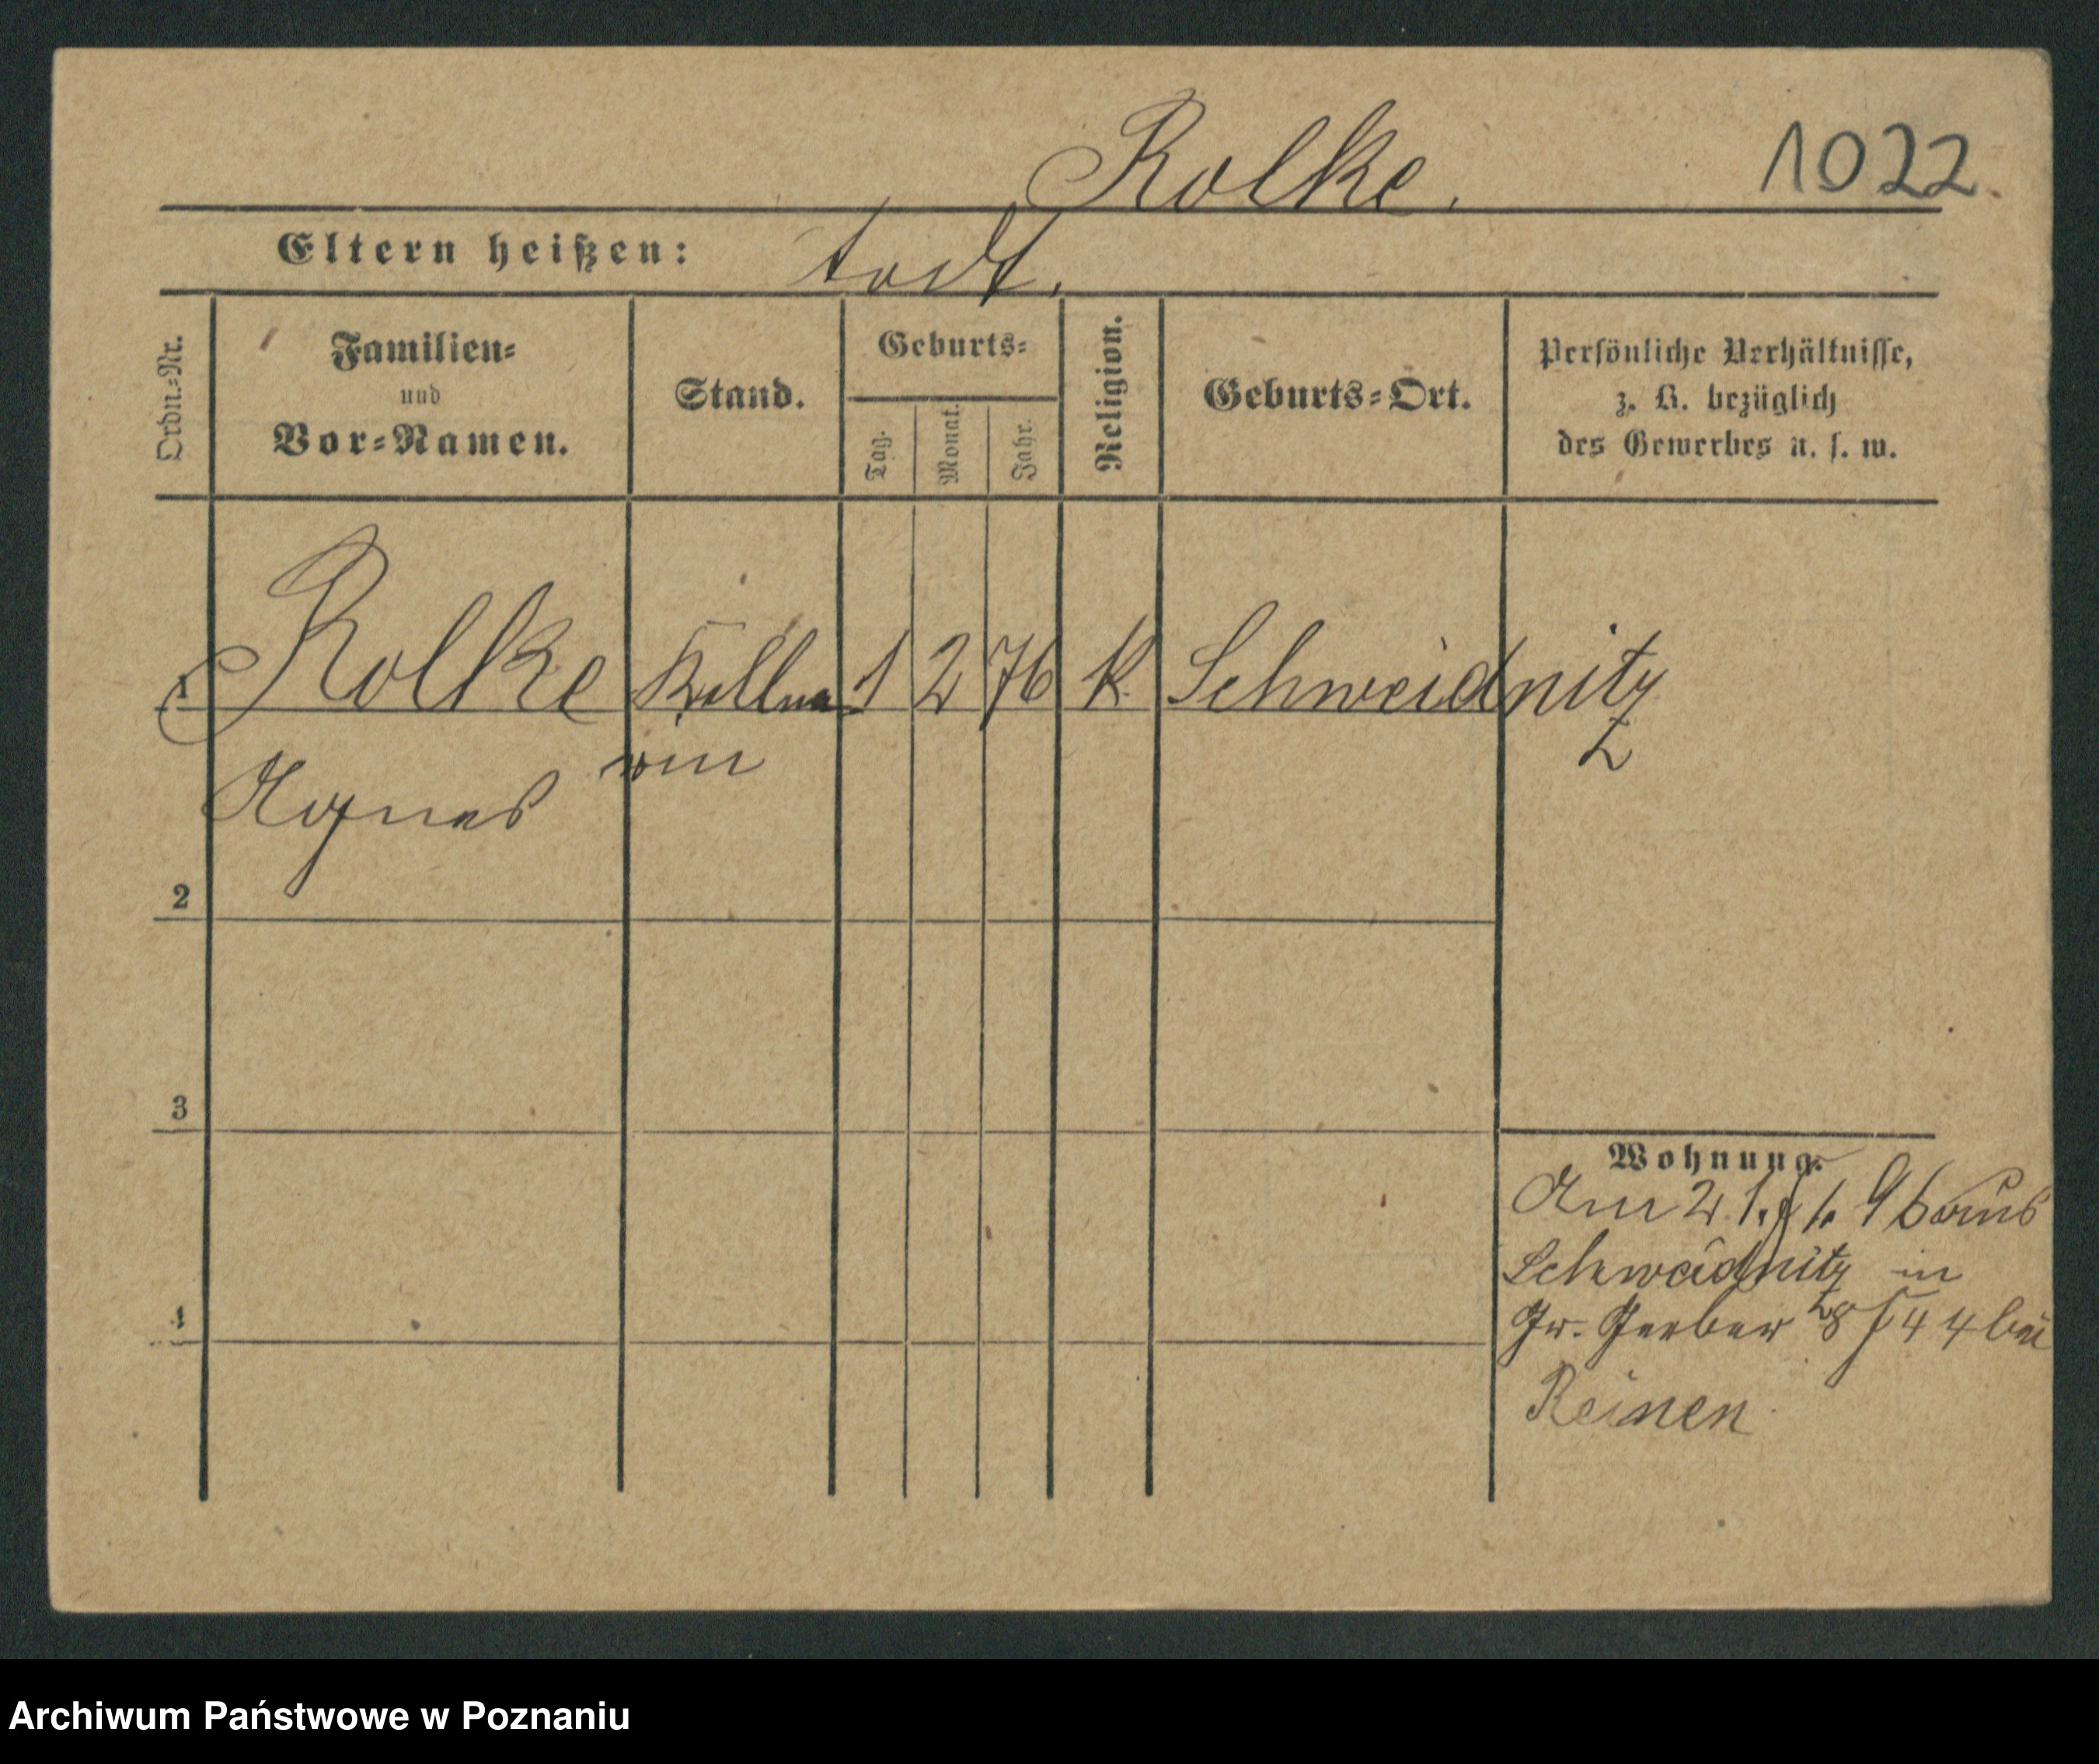 Rolke. 1022
Eltern heißen: todt.
Ordn.-Nr.
Familien-
und
Vor-Namen.
Stand.
Geburts-
Tag.
Monat.
Jahr.
Religion.
Geburts-Ort.
Persönliche Verhältnisse,
z. B. bezüglich
des Gewerbes u. s. w.
1 Rolke Kellne 1 2 76 K Schweidnitz
Agnes rin
2
3
4
Wohnung.
Am 21. 96 aus
Schweidnitz in
Gr. Gerber 44 bei
Reinen
Archiwum Państwowe w Poznaniu